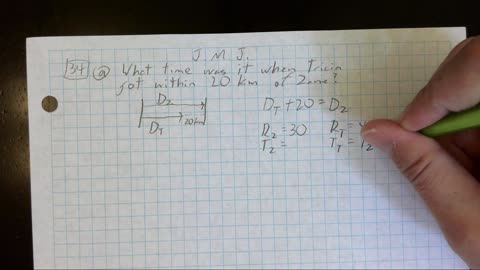 J. M. J.
34 a What time was it when Tricin
got within 20 km of Zane?
D_Z
D_T + 20 = D_Z
20 km
D_T
R_Z = 30 R_T =
T_Z = T_T = T_Z